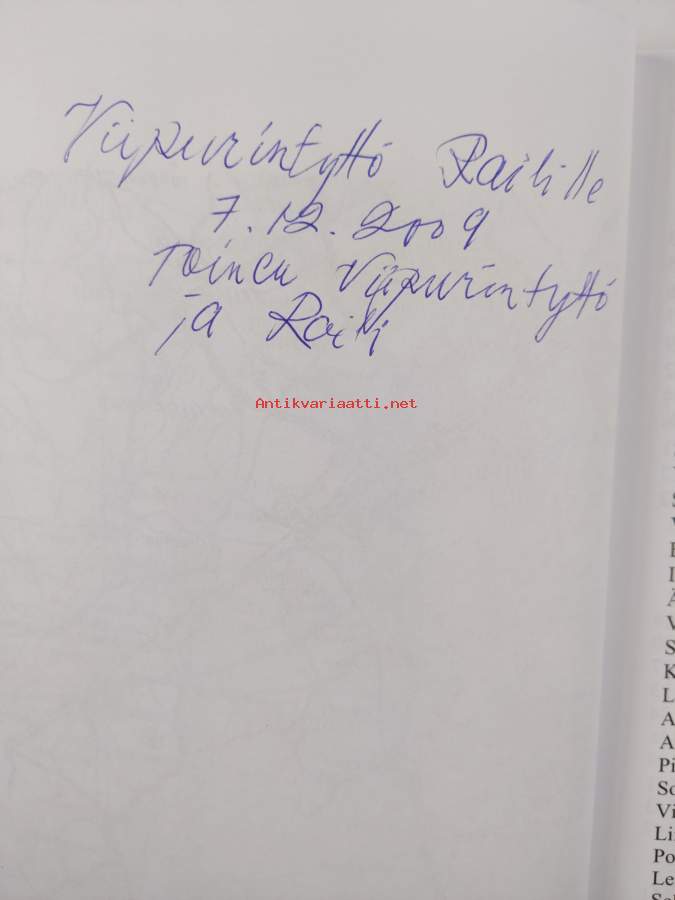 Viipurintyttö Railille
7.12.2009
toinen Viipurintyttö
ja Raili
Antikvariaatti.net
V
S
V
E
L
Ä
V
S
K
L
A
A
Pi
So
Vi
Lii
Po
Le